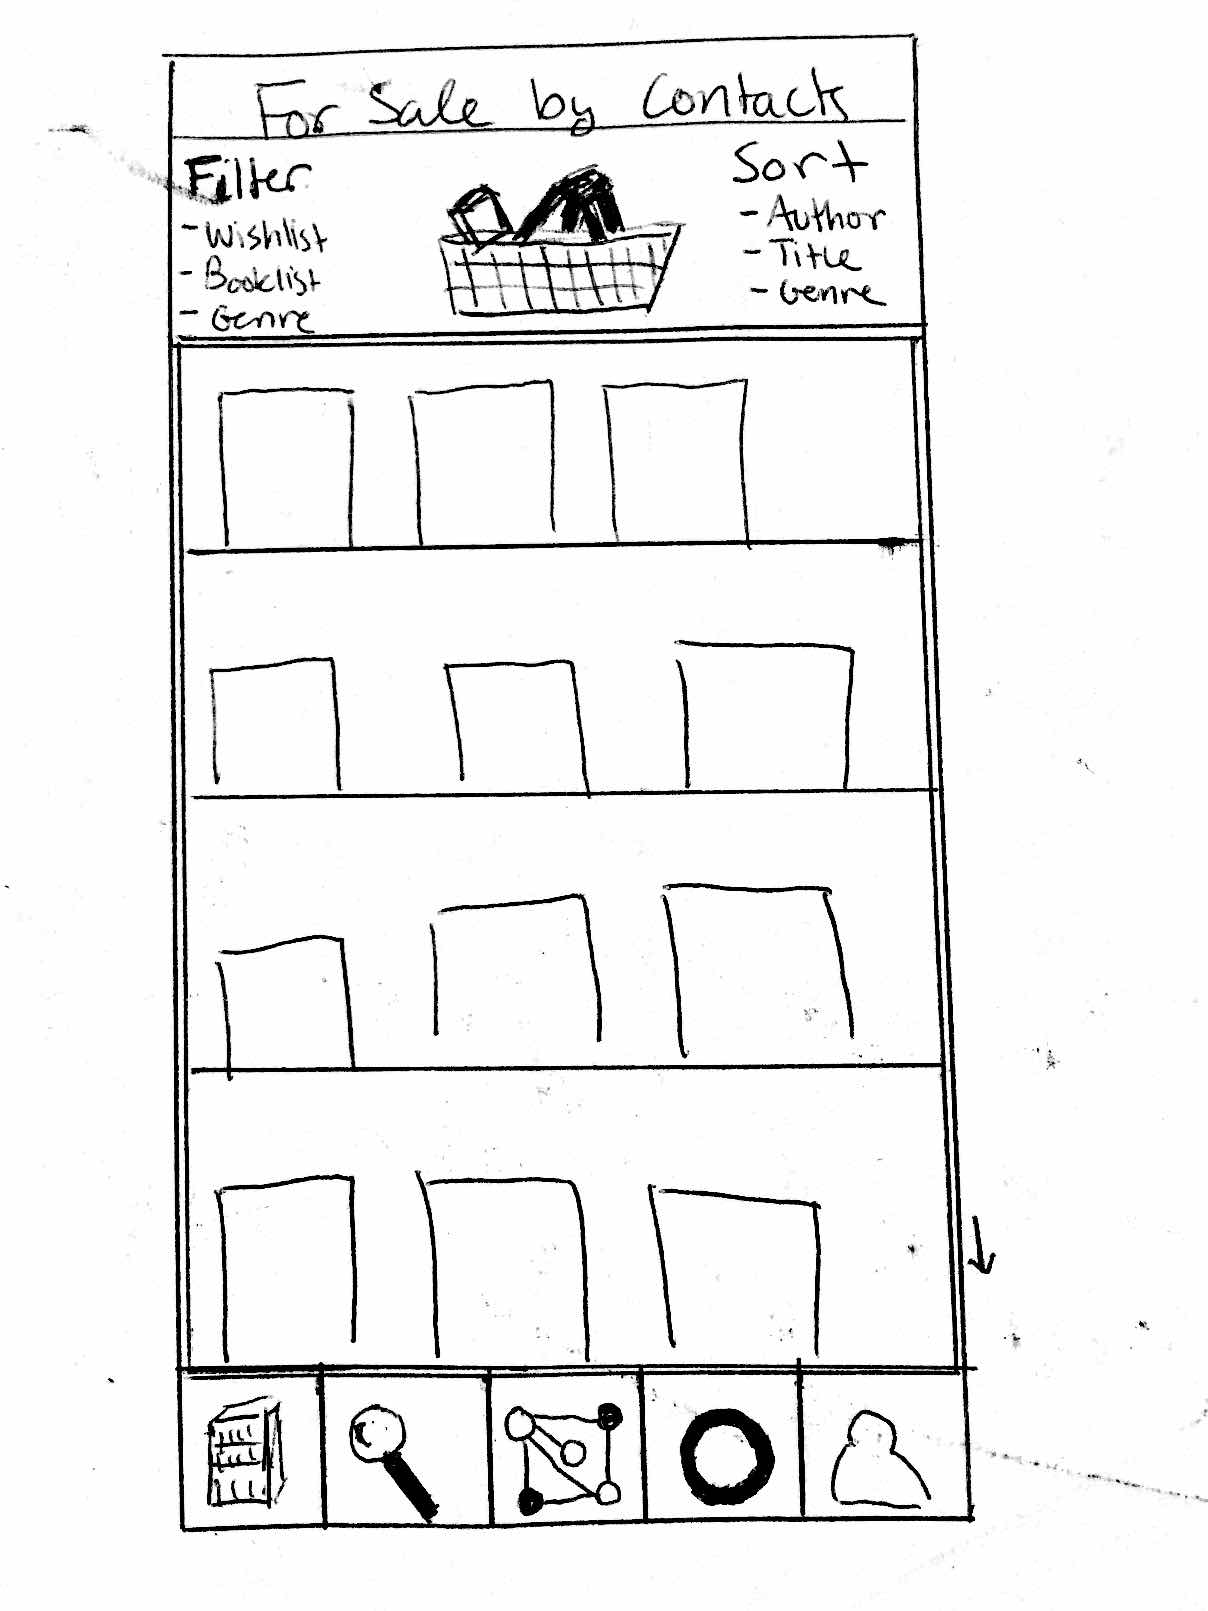 For Sale by Contacts
Filter
- Wishlist
- Booklist
- Genre
Sort
- Author
- Title
- Genre